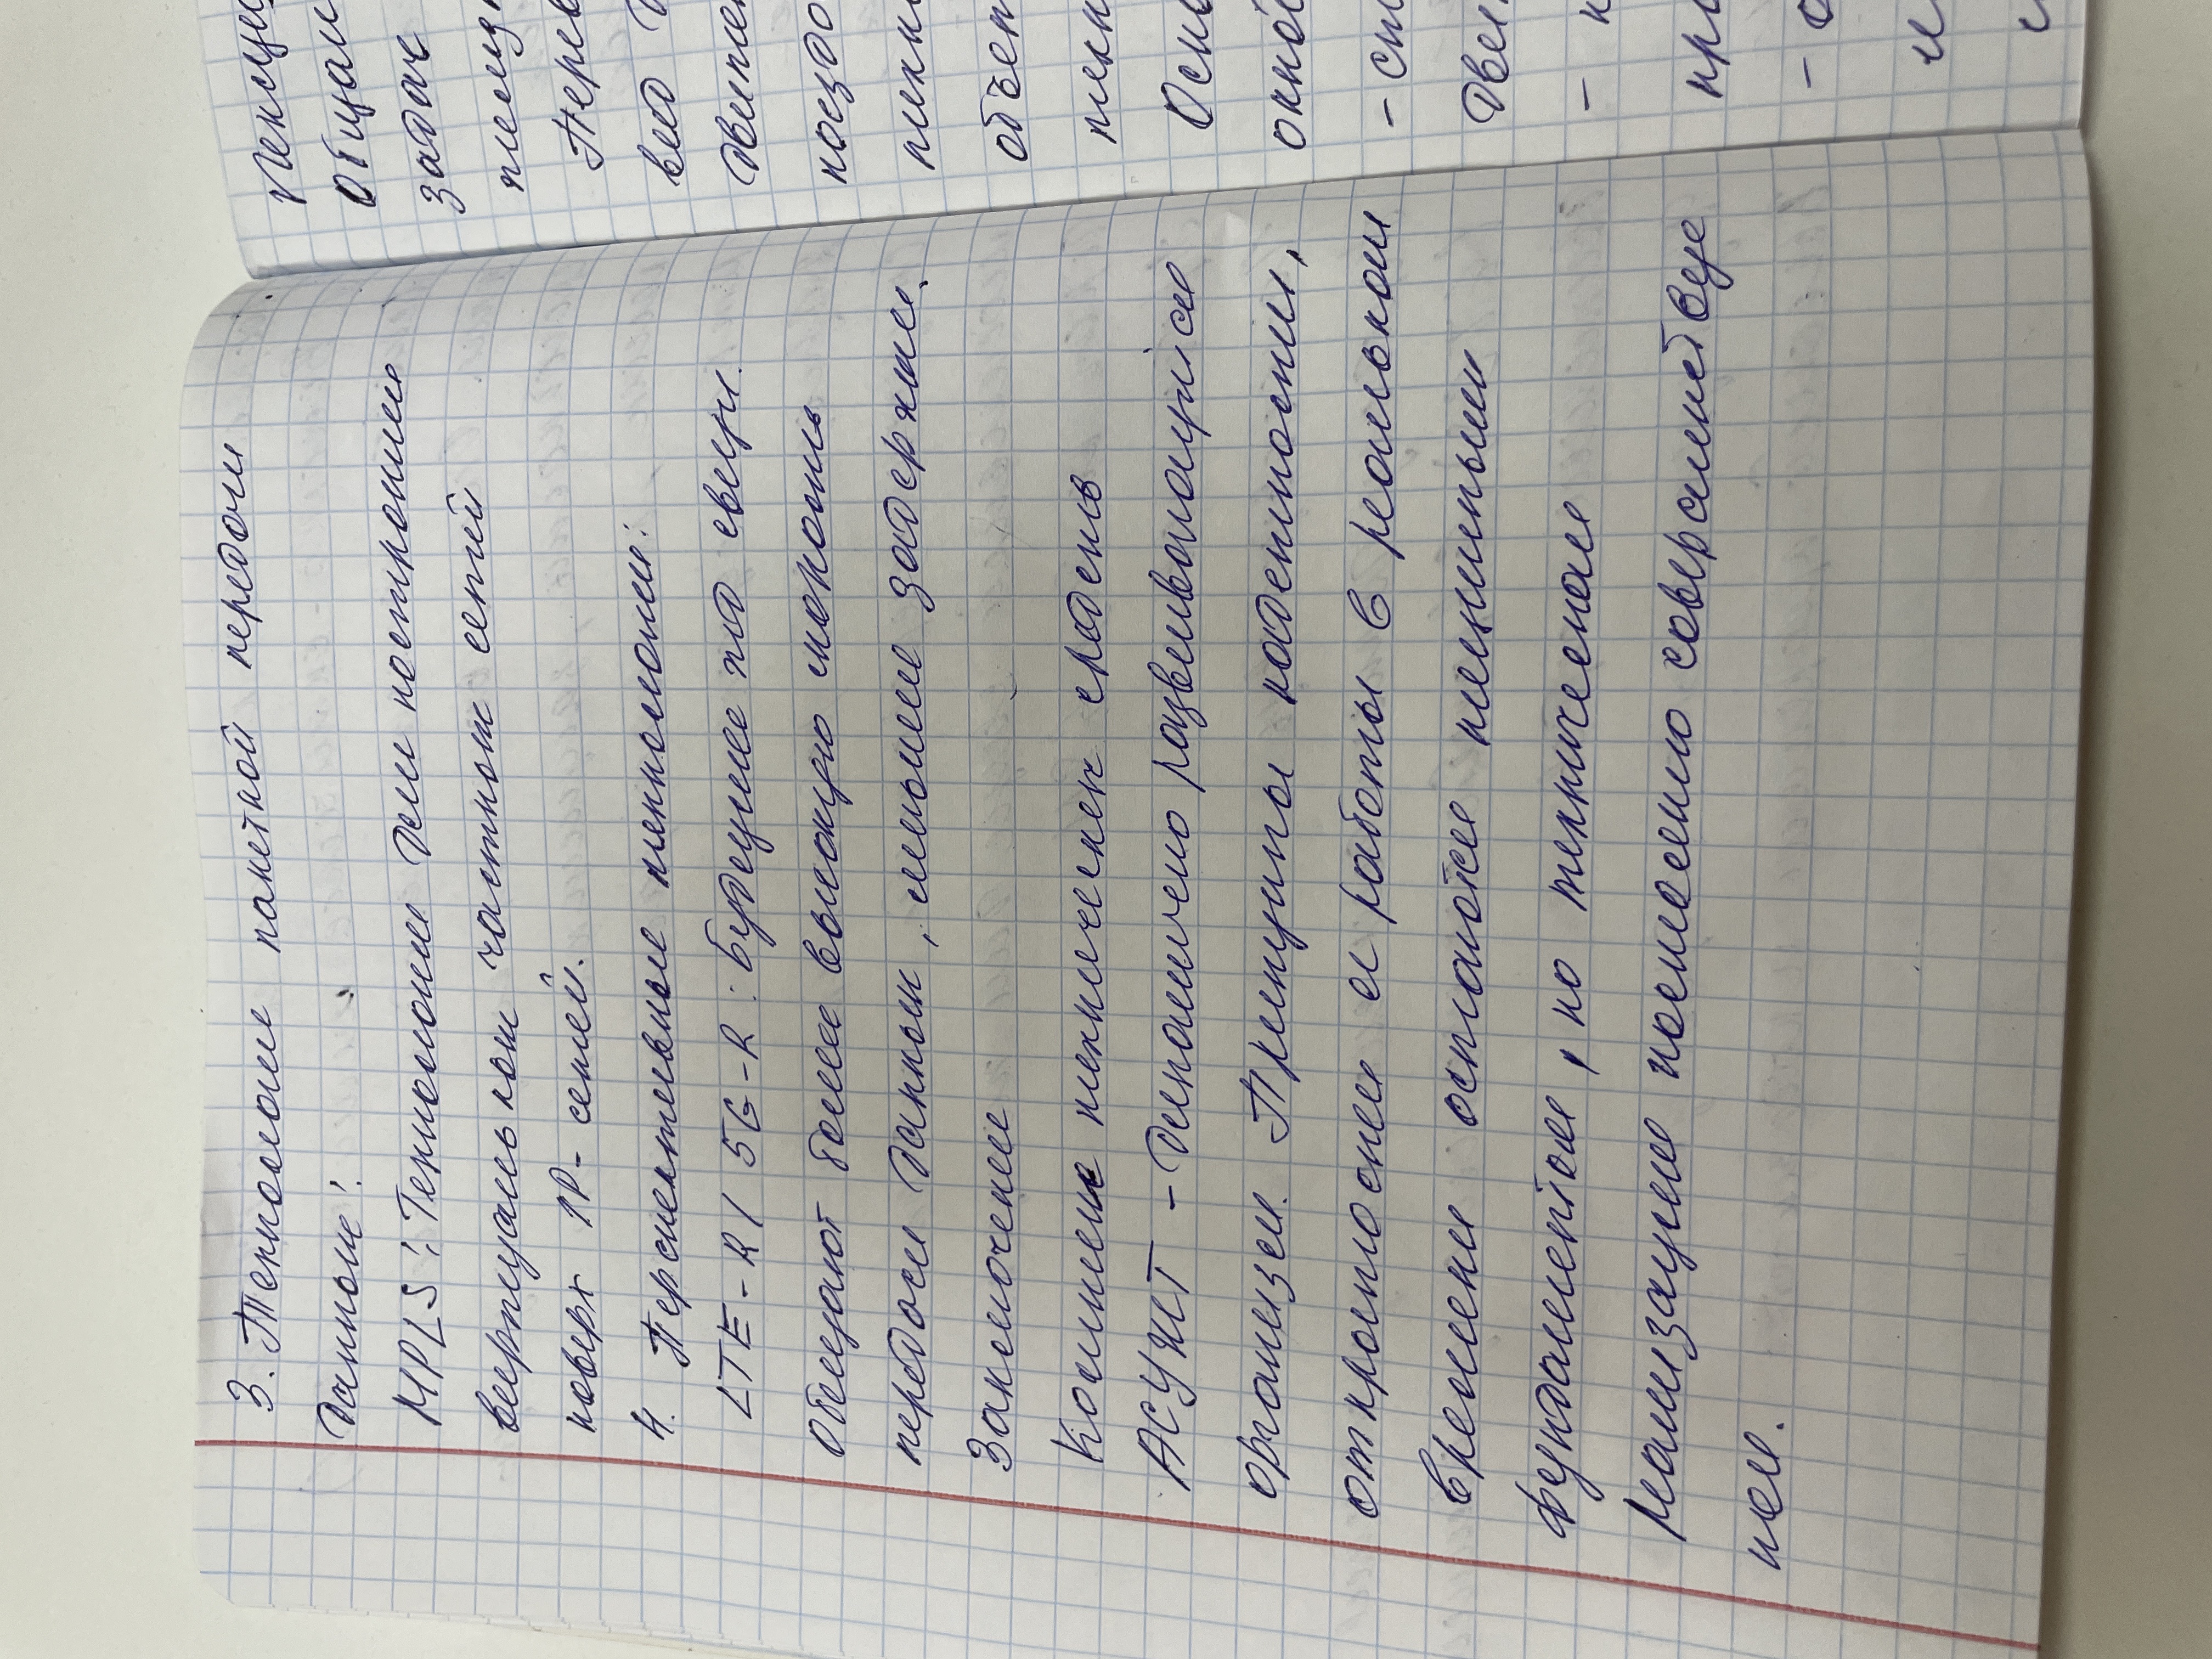 3. Технологии пакетной передачи
данных:
MPLS: Технология для построения
виртуальных частных сетей
поверх IP-сетей.
4. Перспективные технологии:
LTE-R / 5G-R: будущее ж/д связи.
Обещают более высокую скорость
передачи данных, меньшие задержки.
Заключение
Комплекс технических средств
АСУ ЖТ - динамично развивающийся
организм. Принципы надежности,
открытости ее работы в реальном
времени остаются неизменным
фундаментом, но техническая
реализация постоянно совершенствуе
тся.
Лекци
общаи
задач
Перев
вед
движен
поездо
объем
Осно
окной
- сп
двен
- н
про
- о
и